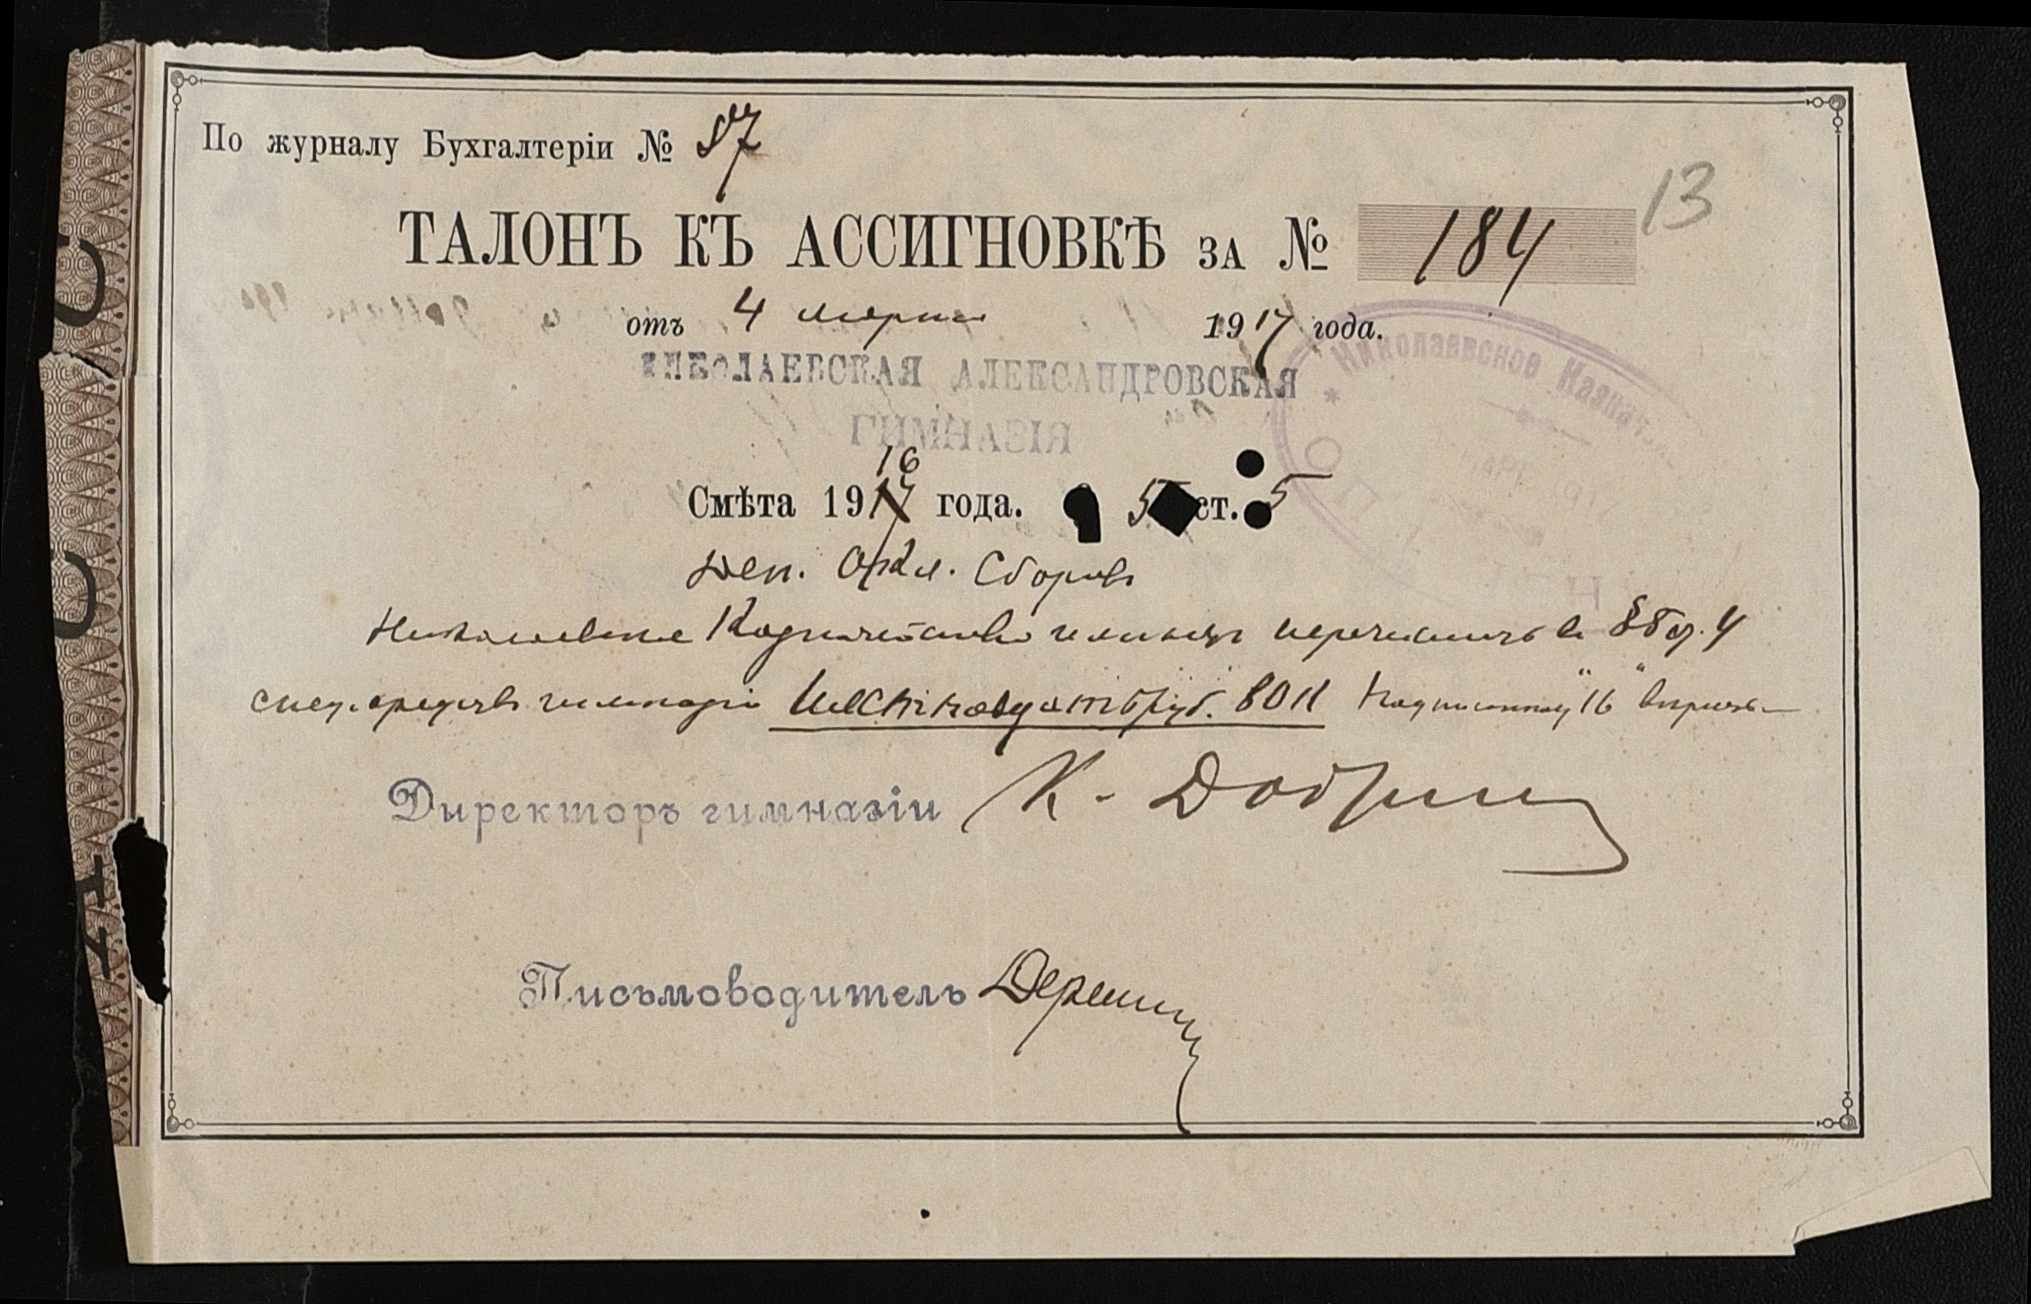 По журналу Бухгалтеріи № 87
13
ТАЛОНЪ КЪ АССИГНОВКѢ ЗА № 184
отъ 4 марта 1917 года.
НИКОЛАЕВСКАЯ АЛЕКСАНДРОВСКАЯ
ГИМНАЗІЯ
Николаевское Казнач
16
Смѣта 1917 года. 5 ст. 5
Деп. Окл. Сборовъ
Николаевское Казначейство перечислить въ
спец. средствъ гимназіи Шестнадцать руб. 80 к
Директоръ гимназіи К. Добрин
Письмоводитель